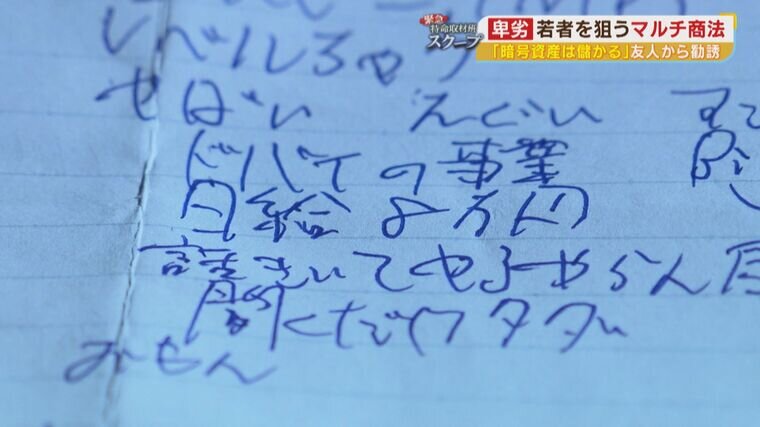 緊急
特命取材班
スクープ
卑劣 若者を狙うマルチ商法
「暗号資産は儲かる」友人から勧誘
レベルちゃう
やばい えぐい
ドバイの事業
月給8万円
話きいてやるやらん
聞くだけタダ
おもん